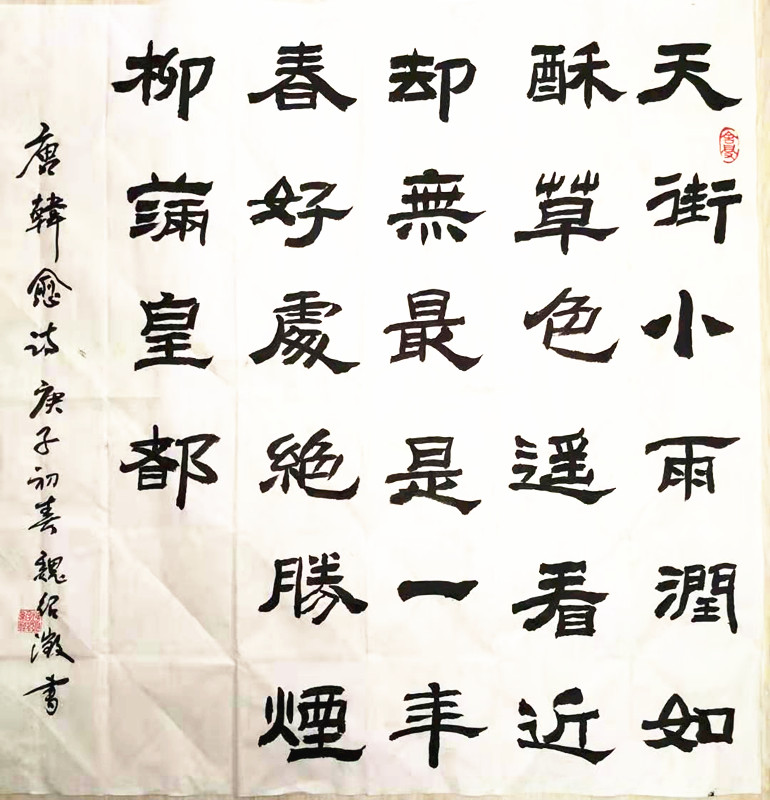 天街小雨潤如
酥草色遥看近
却無最是一年
春好處絕勝煙
柳滿皇都
唐韓愈詩庚子初春魏紹澂書